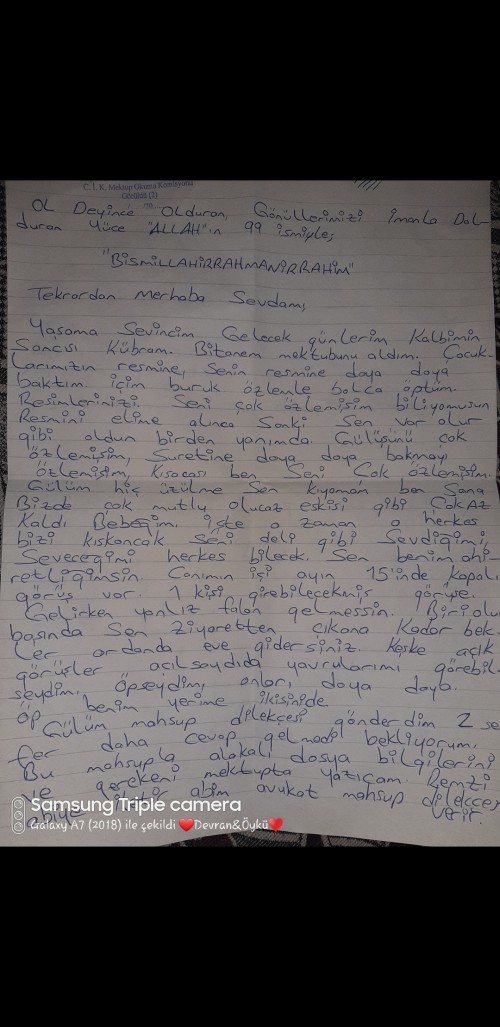 C. İ. K. Mektup Okuma Komisyonu
Görüldü (2)
OL Deyince Olduran, Gönüllerimizi imanla Dol-
duran Yüce "ALLAH"ın 99 ismiyle;
"BiSMiLLAHiRRAHMANiRRAHiM"
Tekrardan Merhaba Sevdam,
Yaşama Sevincim Gelecek günlerim Kalbimin
Sancısı Kübram. Bitanem mektubunu aldım. Çocuk-
larımızın resmine, Senin resmine doya doya
baktım. içim buruk özlemle bolca öptüm.
Resimlerinizi. Seni çok özlemişim biliyomusun
Resmini elime alınca Sanki Sen var olur
gibi oldun birden yanımda. Gülüşünü çok
özlemişim, Suretine doya doya bakmayı
özlemişim, Kısacası ben Seni Çok özlemişim.
Gülüm hiç üzülme Sen kıyamam ben Sana
Bizde çok mutlu olucaz eskisi gibi Çok AZ
Kaldı Bebeğim. işte o zaman o herkes
bizi kıskancak Seni deli gibi Sevdiğimi,
Seveceğimi herkes bilecek. Sen benim ahi-
retliğimsin. Canımın içi ayın 15'inde Kapal
görüş var. 1 kişi girebilecekmiş görüşe.
Gelirken yanlız falan gelmessin. Biri olu
başında Sen Ziyaretten çıkana Kadar bek
ler ordanda eve gidersiniz. Keşke açık
görüşler açılsaydıda yavrularımı görebil-
seydim. Öpseydim, onları doya doya.
Öp benim yerime ikisinide
Gülüm mahsup dilekçesi gönderdim 2 se
fer daha cevap gelmedi bekliyorum.
Bu mahsupla alakalı dosya bilgilerini
ve gerekeni mektupta yazıcam. Remzi
abiye abim avukat mahsup dilekçes
verir.
Samsung Triple camera
Galaxy A7 (2018) ile çekildi ❤️Devran&Öykü❤️